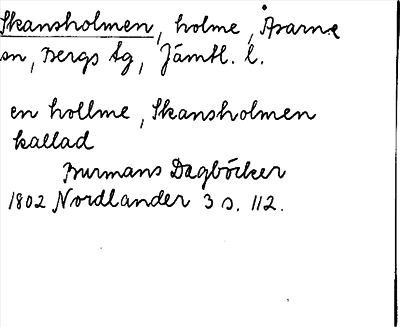 Skansholmen, holme, Åsarne
sn, Bergs tg, Jämtl. l.
en hollme, Skansholmen
kallad
Burmans Dagböcker
1802 Nordlander 3 s. 112.